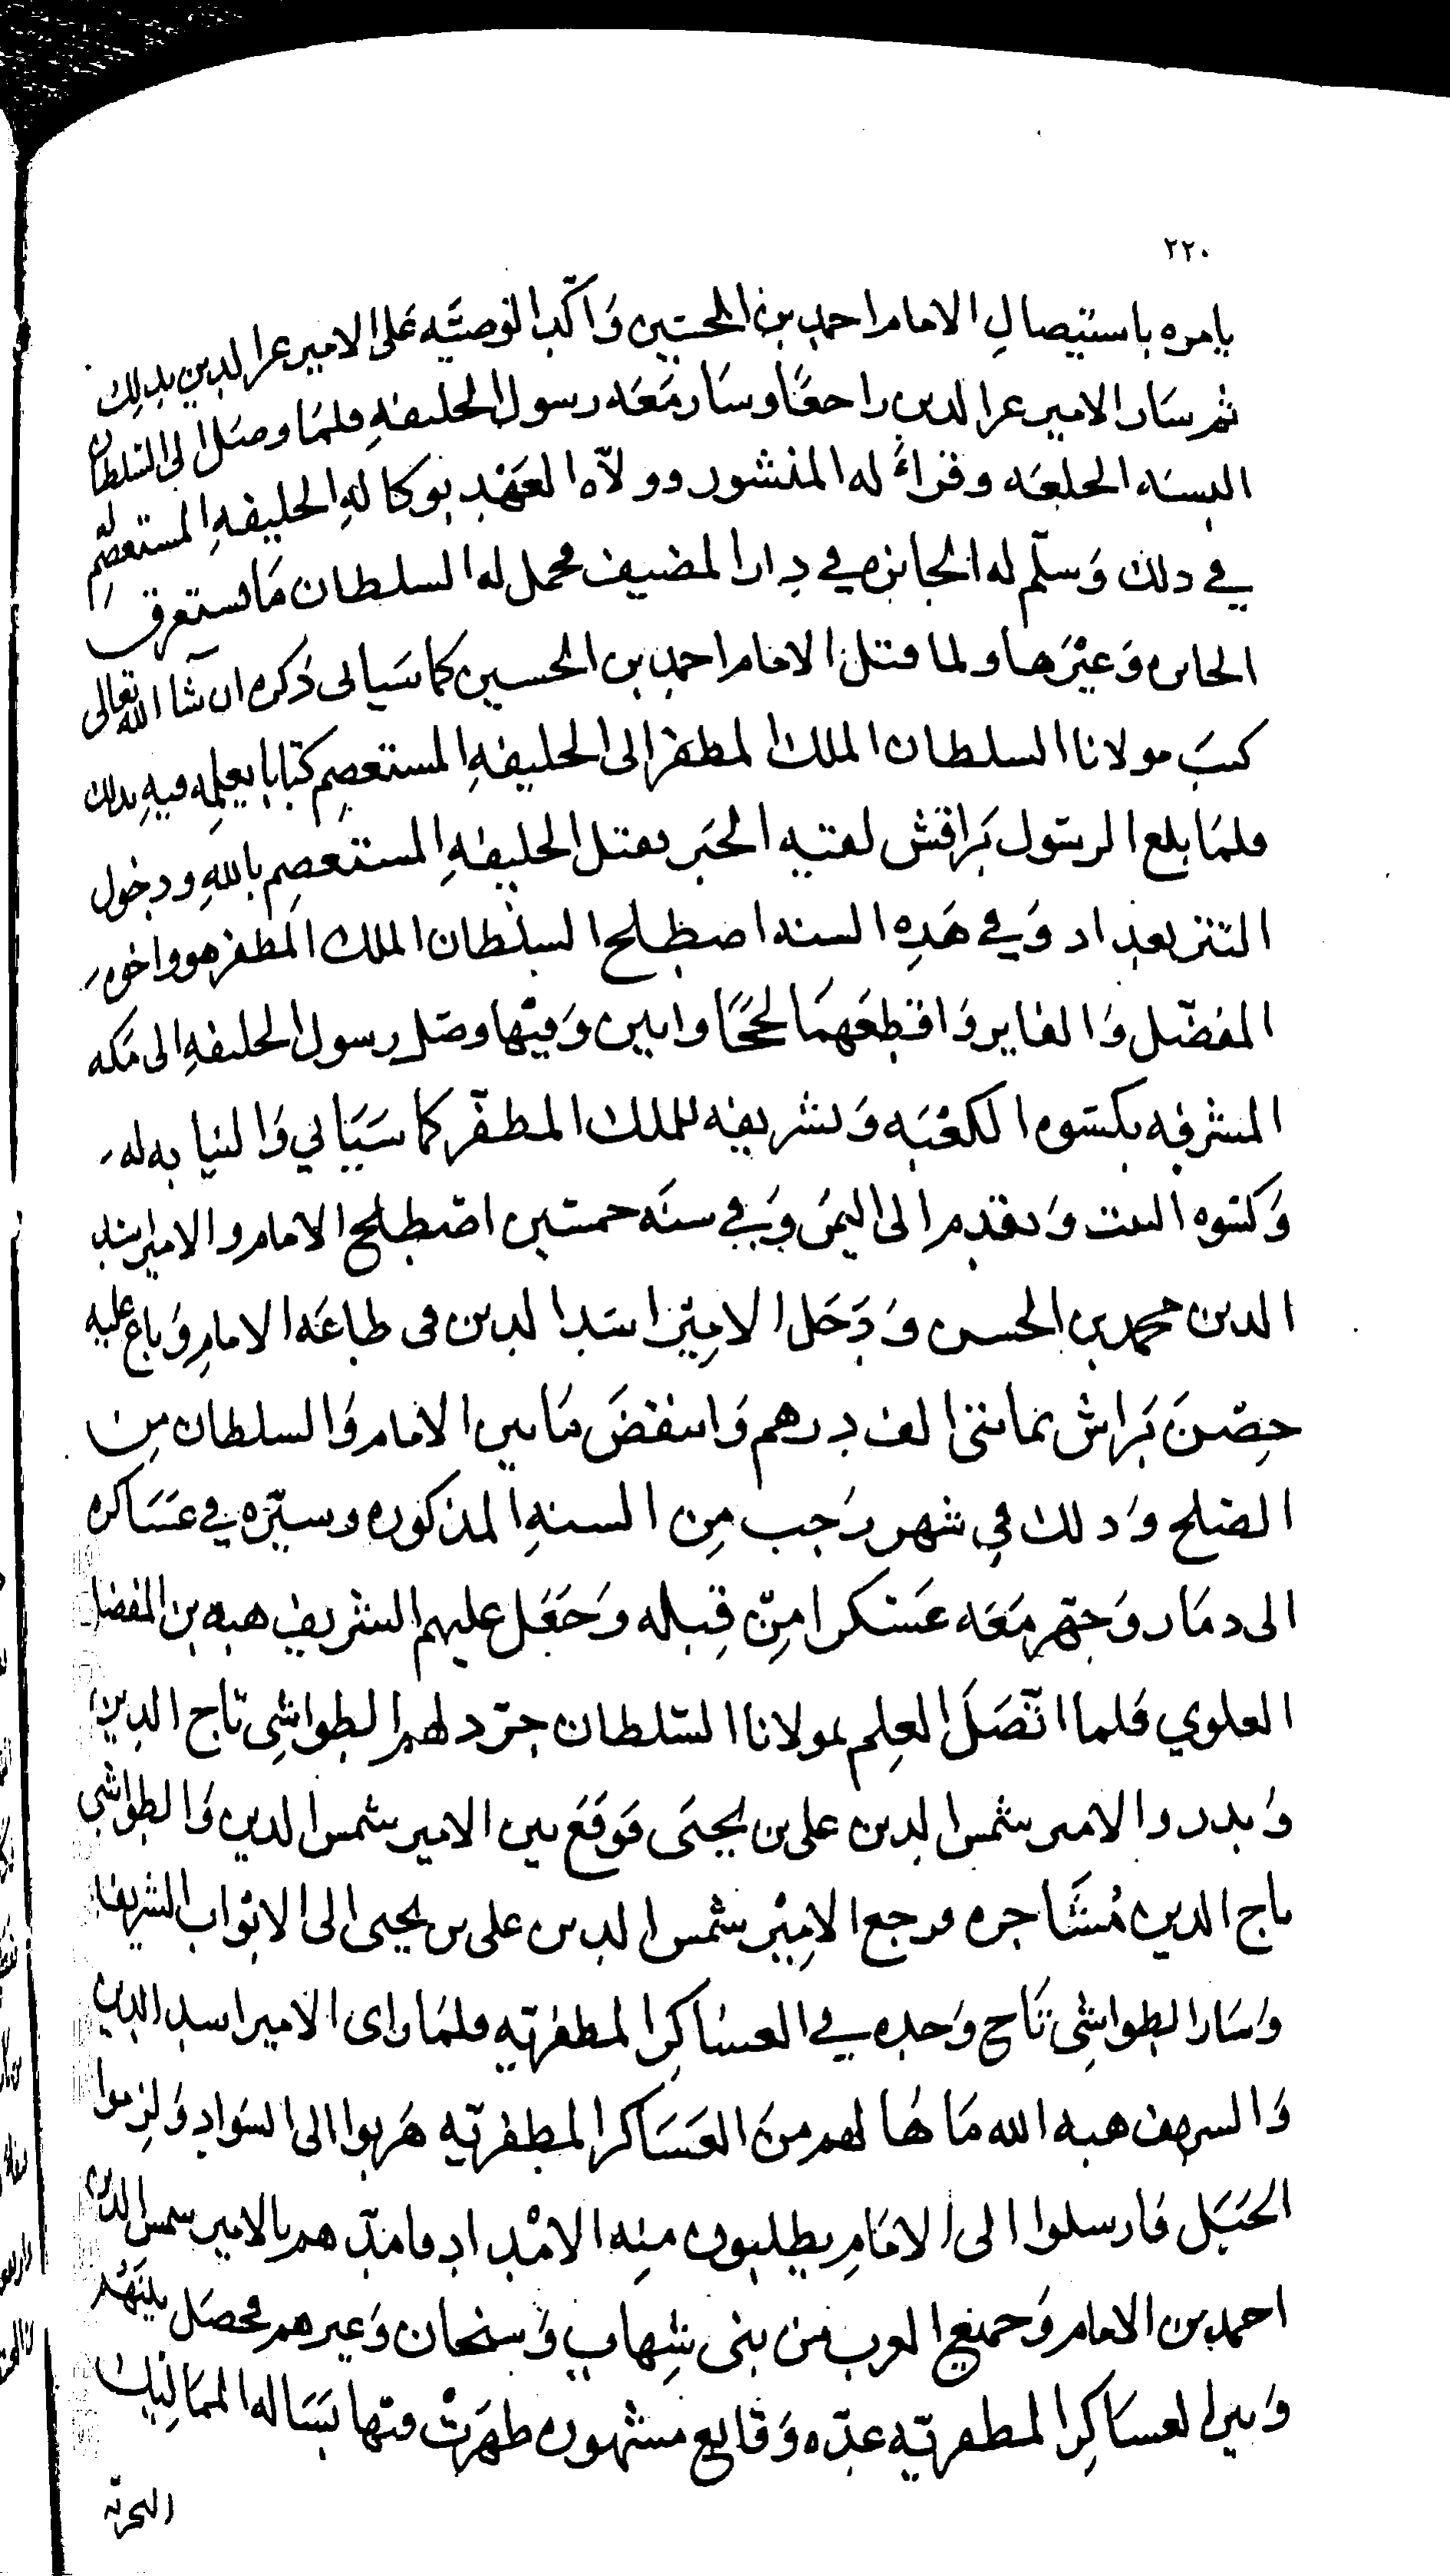 ٢٢٠
يامره باستيصال الامام احمد بن الحسين وَاكّد الوصيَّه عَلى الامير عز الدين بذلك
ثم سَار الامير عز الدين راجعًا وسَار مَعَه رسول الخليفهِ فلمَا وصَل الى السّلطان
البسَه الخلعَه وقراءَ له المنشور وولاّه العَهْد بوكالهِ الخليفهِ المستعصِم له
في ذلك وَسلّم له الجائزه في دِار المضيف فحمل له السلطان مَا يستغرق
الجائزه وَغيْرَها ولما قتل الامام احمد بن الحسين كما سَياتى ذكره ان شا الله تعالى
كتبَ مولانا السلطان الملك المظفر الى الخليفهِ المستعصِم كتابا يعلمه فيهِ بذلك
فلمَا بلغ الرسَول بَراقش لقيه الخَبر بقتل الخليفهِ المستعصِم باللهِ ودخول
التتر بغداد وَفي هَذِه السنه اصطلح السلطان الملك المظفر هو واخوه
المفضّل وَالفايز وَاقطعَهمَا لحجًا وابين وَفيْها وصَل رسول الخليفهِ الى مَكه
المشرفه بكسَوه الكعْبَه وَتشريفه للملك المظفّر كما سَيَاتي وَالنيابه له
وَكسَوه البيت وَتقدم الى اليمَن وَفي سنَه خمسَين اصْطلح الامام والامير اسد
الدين محمد بن الحسن وَدَخَل الامِيْر اسَد الدين في طاعَه الامامِ وَباع عليه
حِصْنَ بَراش بمائتى الف درهم وَانتقضَ مَا بين الامام وَالسلطان مِن
الصَلح وَذلك في شهر رَجب مِن السنهِ المذكوره وسيّره في عسَاكره
الى دمَار وَجهّز مَعَه عَسْكرا مِنْ قِبله وَجَعَل عليهم الشريف هبه بن المفضل
العلوي فلما اتّصَلَ العِلم بمولانا السّلطان جرّد لهم الطواشِى تاج الدين
وَبدر والامير شمس الدين على بن يحيَى فوقعَ بين الامير شمس الدين وَالطواشي
تاج الدين مُشَاجره فرجع الامِيْر شمس الدين على بن يحيى الى الابْواب الشريفه
وَسَار الطواشِى تَاج وَحده في العسَاكِر المظفريّه فلمَا راى الامير اسد الدين
وَالشريف هبه الله مَا هَالهم منَ العَسَاكر المظفريّه هَربوا الى السَوادِ وَلزموا
الجَبَل فارسلوا الى الامَامِ يطلبون منِه الامْداد فامدّهم بالامير شمس الدين
احمد بن الامام وَجميعِ العرب من بنى شِهاب وَسنحان وَغيرهم فحصَل بينَهُم
وَبين العسَاكِر المظفريّه عدّه وَقايع مشهوره ظهَرتْ فيها بسَاله المَمالِيك
البحريّه